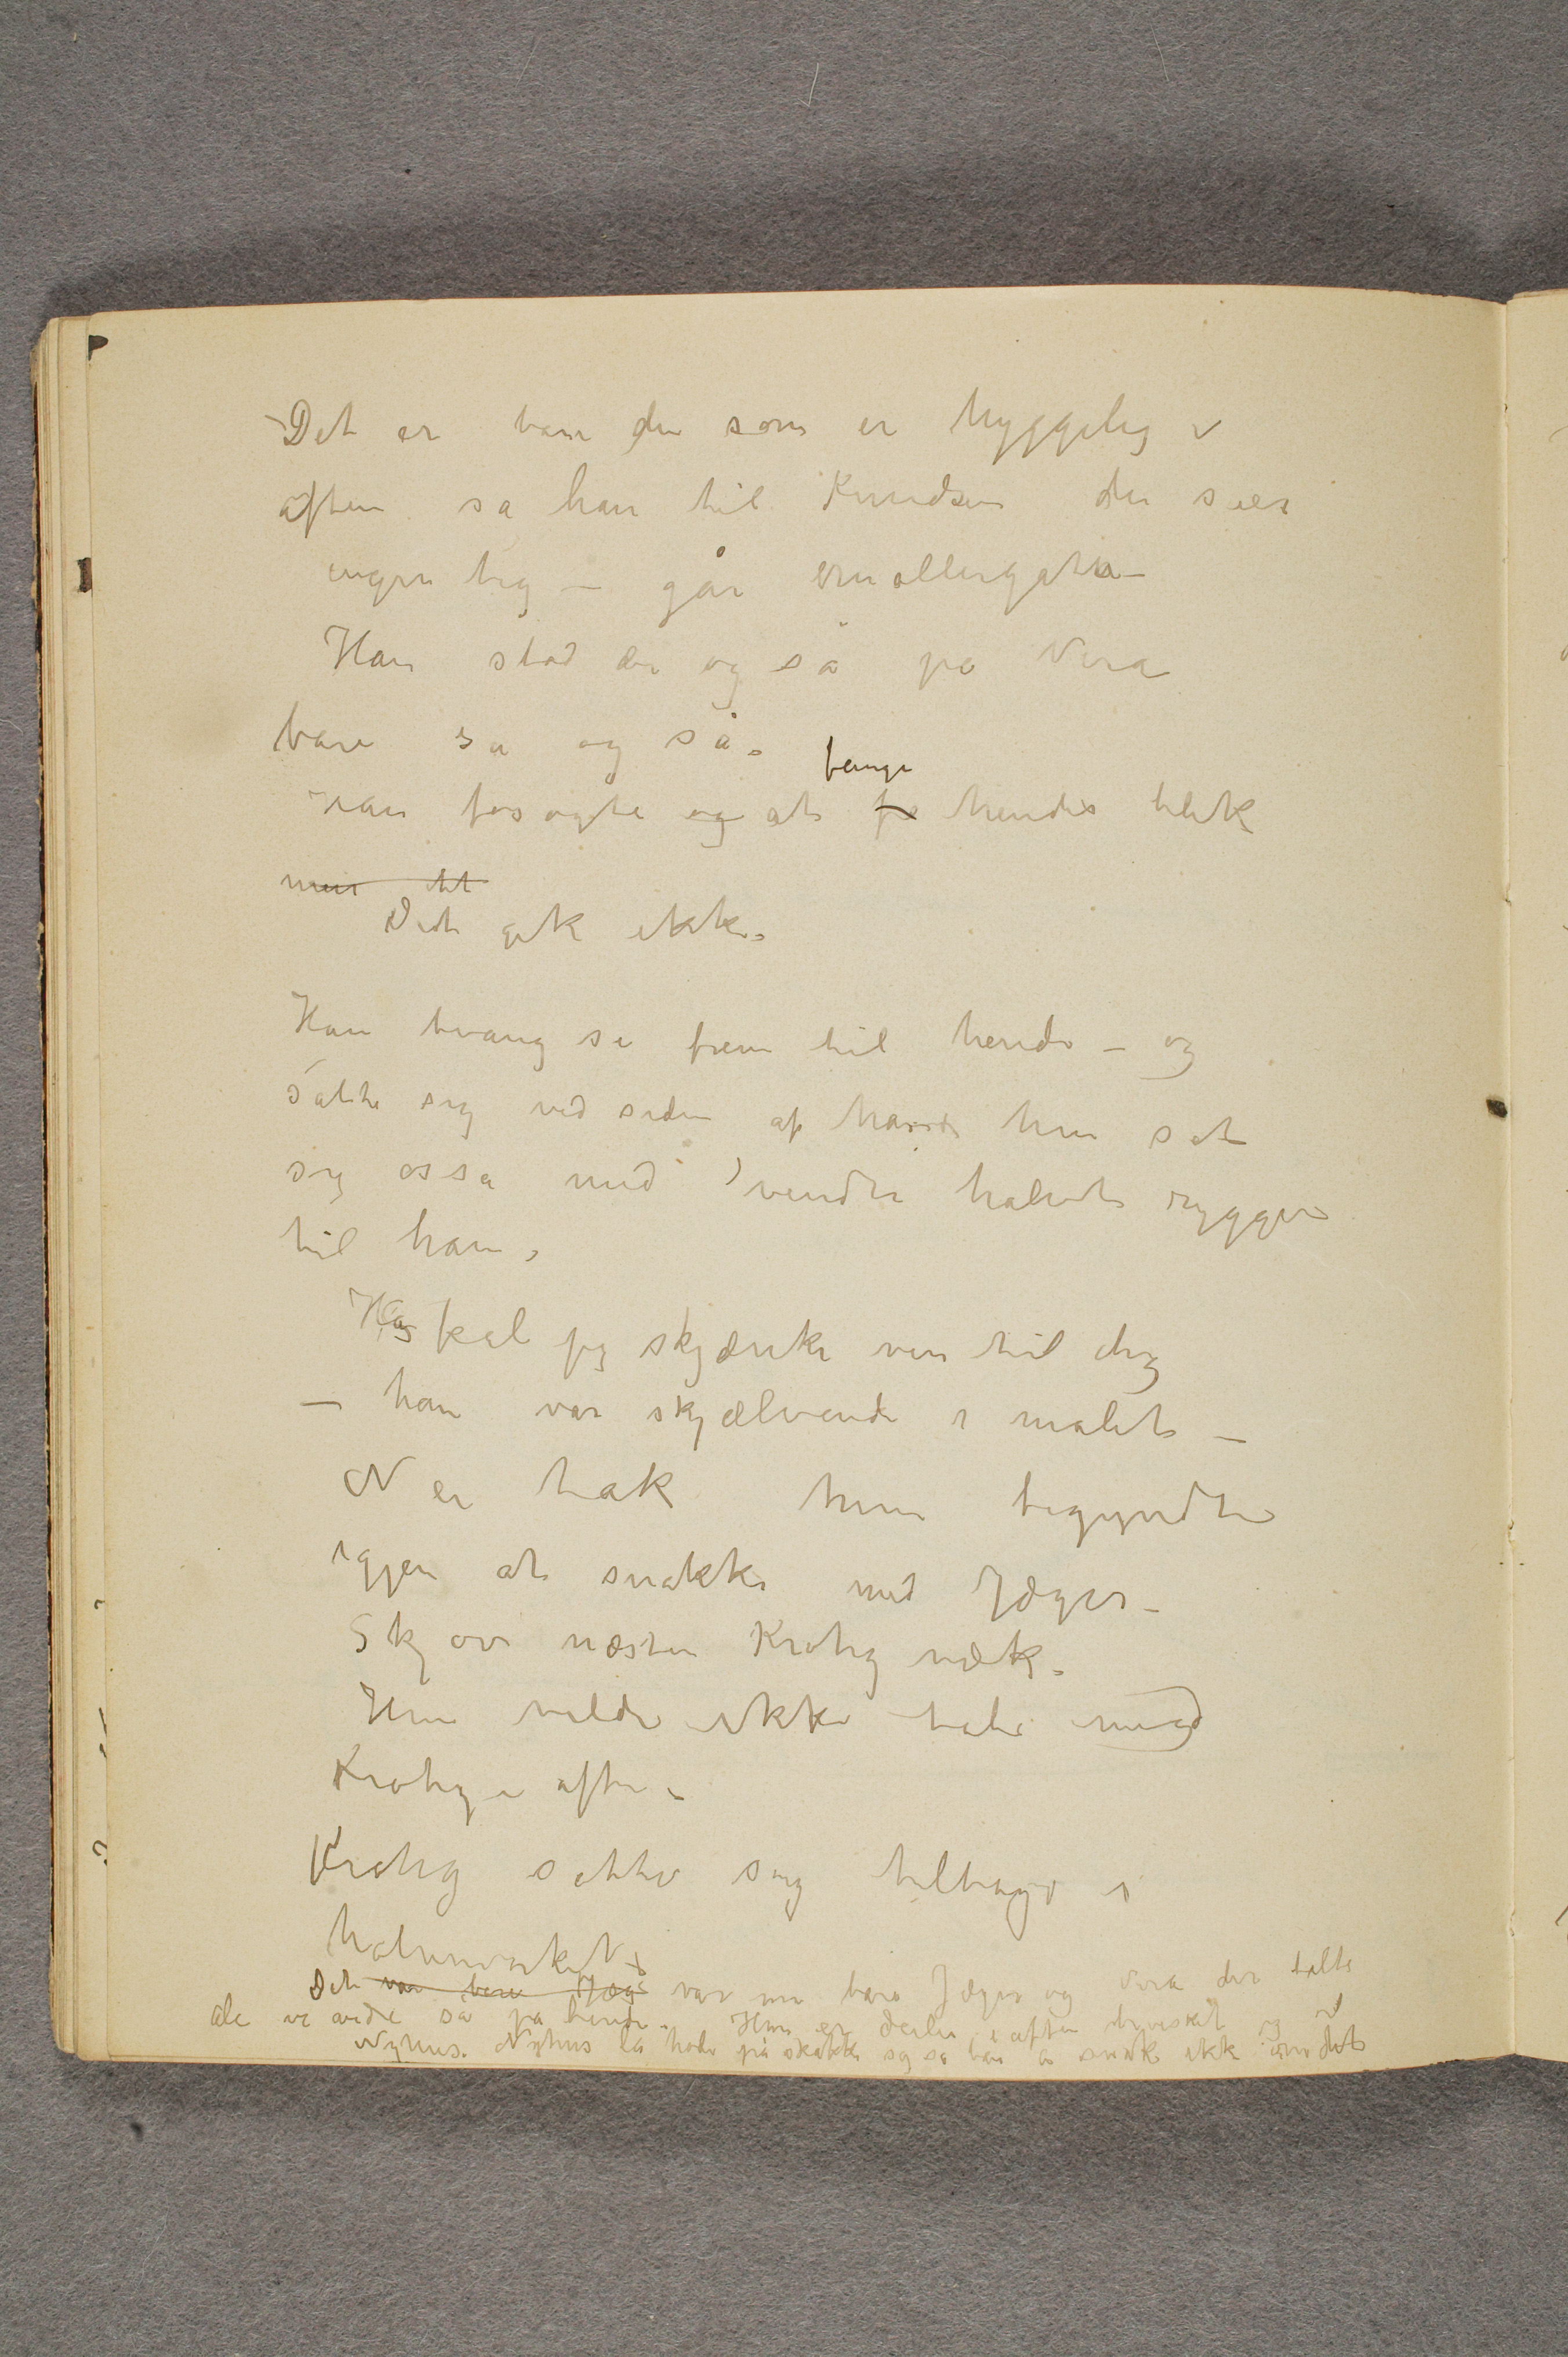 – Det er bare du som er hyggelig i
aften sa han til Knudsen du sier
ingen ting –  går
Han stod der og så på Vera
bare så og så.
fange
Han forsøgte og at få hendes blik
men det
Det gik ikke.
Han tvang se frem til hende – og
satte sig ved siden af hende hun sat
sig osså med vendte halvt ryggen
til ham.
skal jeg skjænke vin til dig
– han var skjælvende i målet –
Nei tak hun begyndte
igjen at snakke med Jæger –
Skjøv næsten Krohg væk.
Hun vilde ikke tale med
Krohg i aften.
Krohg satte sig tilbage i
halvmørket –
Det var bare Jæg var nu bare Jæger og Vera der talte
alle vi andre så på hende. Hun er deilig i aften hvisket jeg til
Nyhus. Nyhus la hode på skakke og sa bare å snak ikke om det